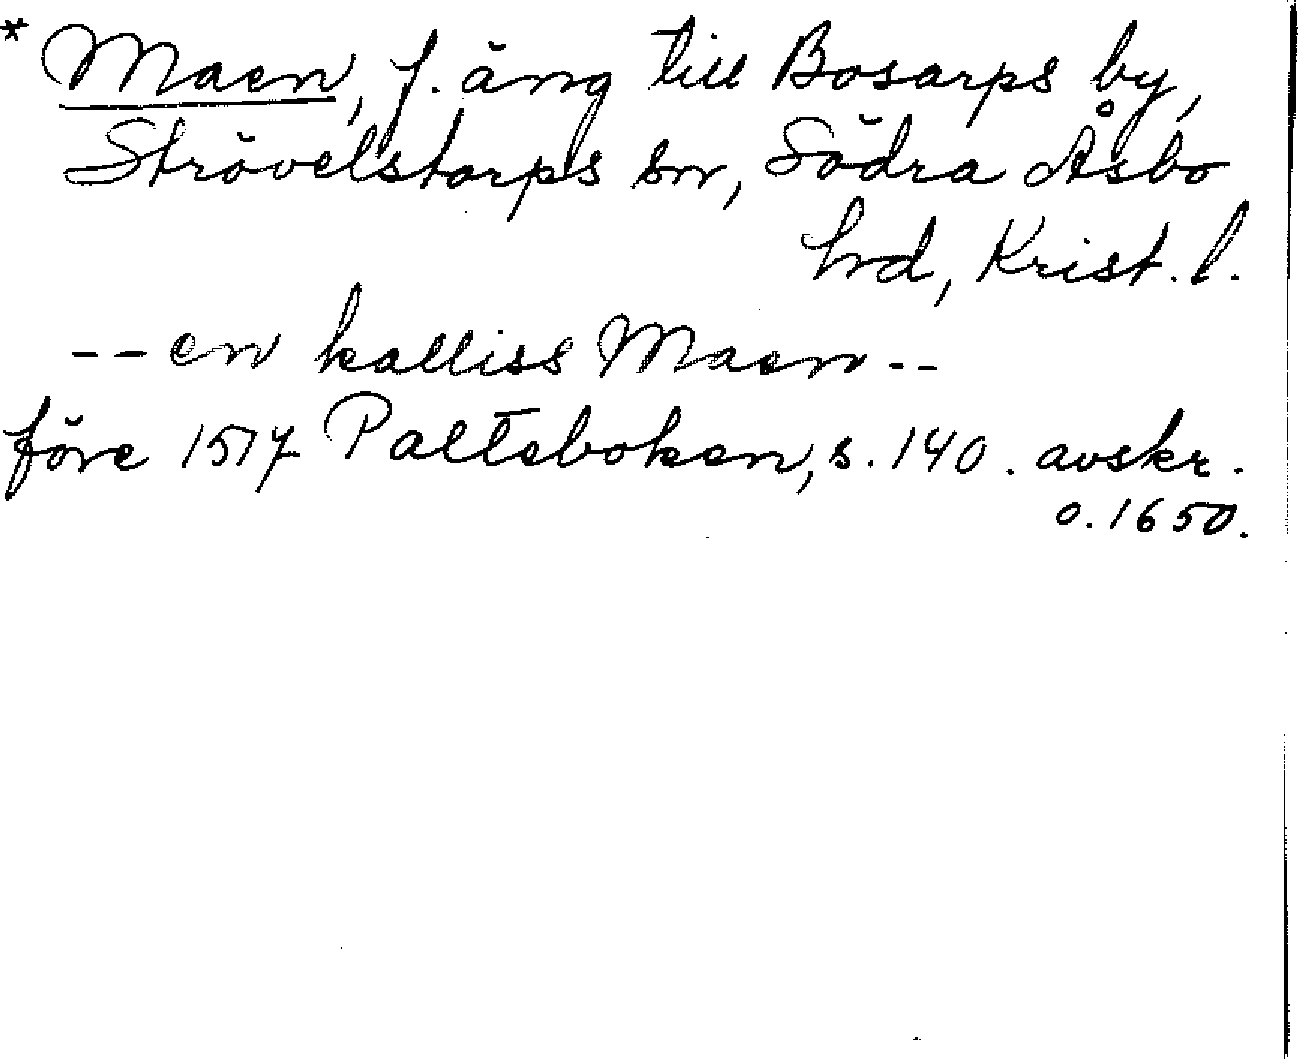 * Maen, f. äng till Bosarps by,
Strövelstorps sn, Södra Åsbo
hrd, Krist. l.
-- en kalliss Maen --
före 1517 Palteboken, s. 140. avskr.
o. 1650.